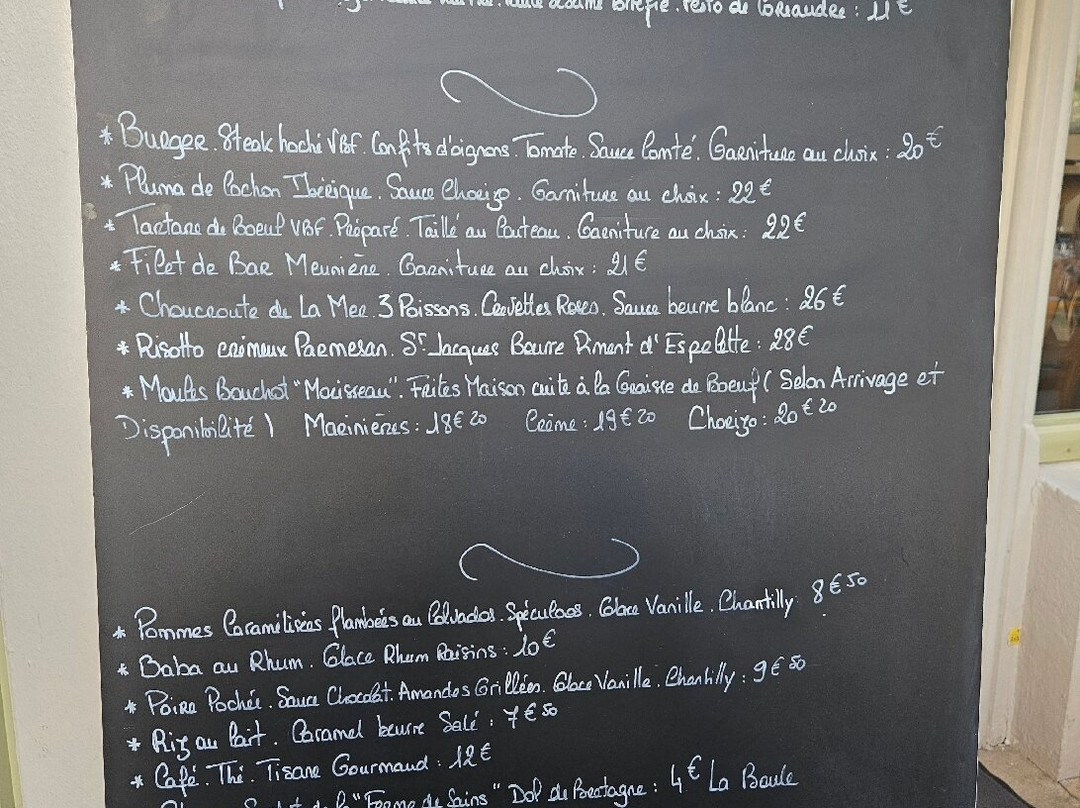 Pesto de Coriandre : 11 €
* Burger . Steak haché VBF . Confits d'oignons . Tomate . Sauce Comté . Garniture au choix : 20 €
* Pluma de Cochon Ibérique . Sauce Chorizo . Garniture au choix : 22 €
* Tartare de Boeuf VBF . Préparé . Taillé au Couteau . Garniture au choix : 22 €
* Filet de Bar Meunière . Garniture au choix : 21 €
* Choucroute de La Mer . 3 Poissons . Crevettes Roses . Sauce beurre blanc : 26 €
* Risotto crémeux Parmesan . St Jacques Beurre Piment d'Espelette : 28 €
* Moules Bouchot "Moisseau" . Frites Maison cuite à la Graisse de Boeuf ( Selon Arrivage et
Disponibilité ) Marinières : 18 € 20 Crème : 19 € 20 Chorizo : 20 € 20
* Pommes Caramélisées flambées au Calvados . Spéculoos . Glace Vanille . Chantilly : 8 € 50
* Baba au Rhum . Glace Rhum Raisins : 10 €
* Poire Pochée . Sauce Chocolat . Amandes Grillées . Glace Vanille . Chantilly : 9 € 50
* Riz au lait . Caramel beurre Salé : 7 € 50
* Café . Thé . Tisane Gourmand : 12 €
de la "Ferme de Sains" Dol de Bretagne : 4 € La Boule